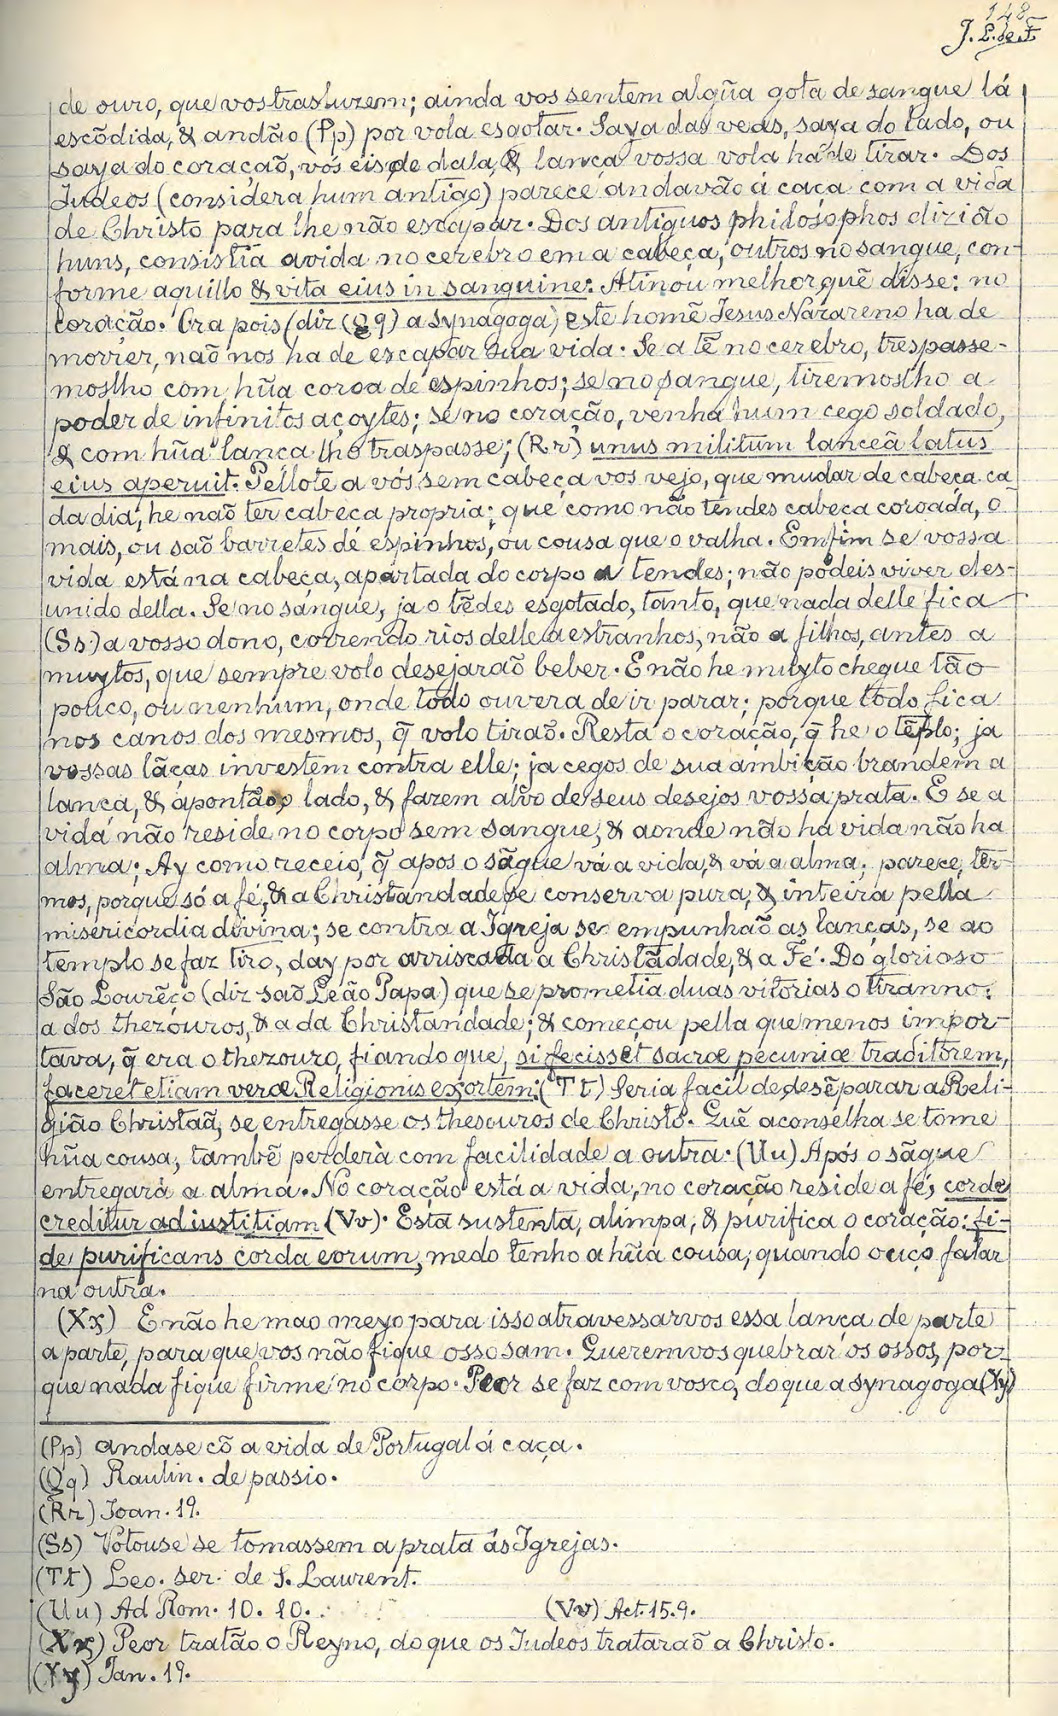 148
J. L. de F.
de ouro, que vos trasluzem; ainda vos sentem algũa gota de sangue lá
escõdida, & andão (Pp) por vola esgotar. Saya das veas, saya do lado, ou
saya do coração, vós eis de dala, & lança vossa vola há de tirar. Dos
Judeos (considera hum antigo) parece andavão á caça com a vida
de Christo para lhe não escapar. Dos antiguos philosophos dizião
huns, consistia a vida no cerebro em a cabeça, outros no sangue, con-
forme aquillo & vita eius in sanguine: Atinou melhor quẽ disse: no
coração. Ora pois (diz (Qq) a Synagoga) este homẽ Jesus Nazareno ha de
morrer, naõ nos ha de escapar sua vida. Se a tẽ no cerebro, trespasse-
moslho com hũa coroa de espinhos; se no sangue, tiremoslho a
poder de infinitos açoytes; se no coração, venha hum cego soldado,
& com hũa lança lho traspasse; (Rr) unus militum lanceâ latus
eius aperuit. Pellote a vós sem cabeça vos vejo, que mudar de cabeça ca-
da dia, he naõ ter cabeca propria; que como não tendes cabeca coroada, o
mais, ou saõ barretes de espinhos, ou cousa que o valha. Emfim se vossa
vida está na cabeça, apartada do corpo a tendes; não podeis viver des-
unido della. Se no sangue, ja o tẽdes esgotado, tanto, que nada delle fica
(Ss) a vosso dono, correndo rios delle a estranhos, não a filhos, antes a
muytos, que sempre volo desejaraõ beber. E não he muyto chegue tão
pouco, ou nenhum, onde todo ouvera de ir parar; porque todo fica
nos canos dos mesmos, q̃ volo tiraõ. Resta o coração, q̃ he o tẽplo; ja
vossas lãças investem contra elle; ja cegos de sua ambição brandem a
lança, & apontão o lado, & fazem alvo de seus desejos vossa prata. E se a
vida não reside no corpo sem sangue, & aonde não ha vida não ha
alma; Ay como receio, q̃ apos o sãgue vá a vida, & vá a alma; parece, ter-
mos, porque só a fé, & a Christandade se conserva pura, & inteira pella
misericordia divina; se contra a Igreja se empunhão as lanças, se ao
templo se faz tiro, day por arriscada a Christãdade, & a Fé. Do glorioso
São Lourẽço (diz saõ Leão Papa) que se prometia duas vitorias o tiranno:
a dos thezouros, & a da Christandade; & começou pella que menos impor-
tava, q̃ era o thezouro, fiando que, si fecisset sacræ pecuniæ traditorem,
faceret etiam veræ Religionis exortem; (Tt) Seria facil de desẽparar a Reli-
gião Christaã, se entregasse os thesouros de Christo. Quẽ aconselha se tome
hũa cousa, tambẽ perderà com facilidade a outra. (Uu) Após o sãgue
entregarà a alma. No coração está a vida, no coração reside a fé, corde
creditur ad iustitiam (Vv). Esta sustenta, alimpa, & purifica o coração: fi-
de purificans corda eorum, medo tenho a hũa cousa, quando ouço falar
na outra.
(Xx) E não he mao meyo para isso atravessarvos essa lança de parte
a parte, para que vos não fique osso sam. Querem vos quebrar os ossos, por-
que nada fique firme no corpo. Peor se faz com vosco, do que a synagoga (Yy)
(Pp) andase cõ a vida de Portugal á caça.
(Qq) Raulin. de passio.
(Rr) Joan. 19.
(Ss) Votouse se tomassem a prata ás Igrejas.
(Tt) Leo. ser. de S. Laurent.
(Uu) Ad Rom. 10. 10. (Vv) Act. 15. 9.
(Xx) Peor tratão o Reyno, do que os Judeos trataraõ a Christo.
(Yy) Jan. 19.